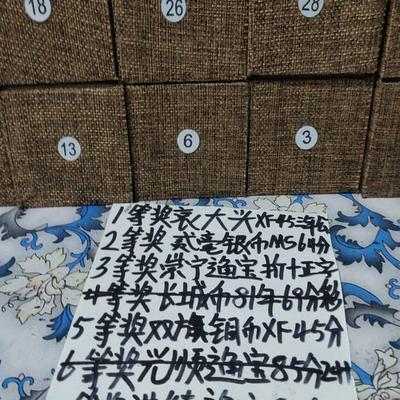 18 26 28
13 6 3
1等奖袁大头XF45三年公
2等奖贰毫银币MS64分
3等奖崇宁通宝折十正字
4等奖长城币81年69分
5等奖双旗铜币XF45分
6等奖光顺通宝85分